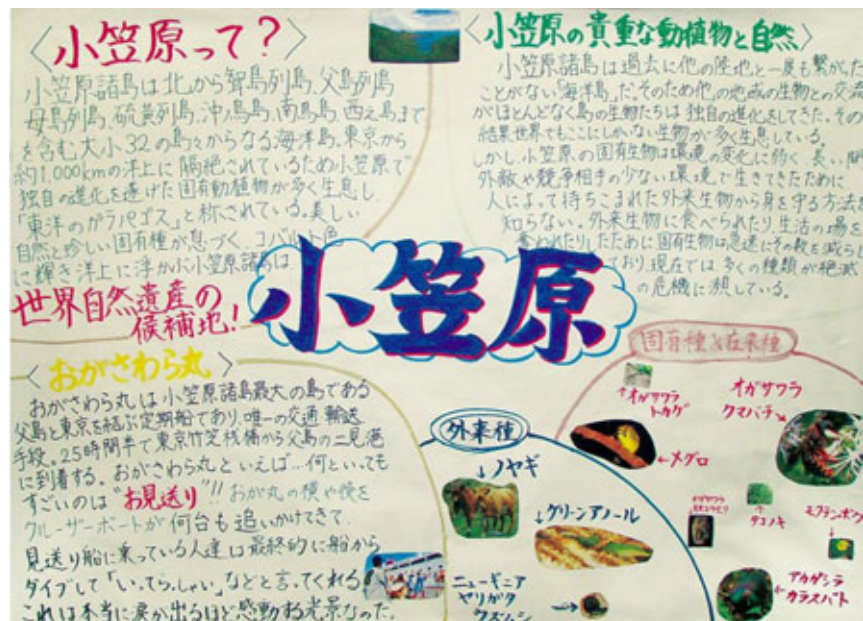 〈小笠原って?〉
小笠原諸島は北から聟島列島、父島列島
母島列島、硫黄列島、沖ノ鳥島、南鳥島、西之島まで
を含む大小32の島々からなる海洋島。東京から
約1,000kmの洋上に隔絶されているため小笠原で
独自の進化を遂げた固有動植物が多く生息し
「東洋のガラパゴス」と称されている。美しい
自然と珍しい固有種が息づく、コバルト色
に輝き洋上に浮かぶ小笠原諸島は
世界自然遺産の
候補地!
〈小笠原の貴重な動植物と自然〉
小笠原諸島は過去に他の陸地と一度も繋がった
ことがない「海洋島」だ。そのため他の地域の生物との交流
がほとんどなく島の生物たちは独自の進化をしてきた。その
結果世界でもここにしかいない生物が多く生息している。
しかし、小笠原の固有生物は環境の変化に弱く、長い間
外敵や競争相手の少ない環境で生きてきたために
人によって持ちこまれた外来生物から身を守る方法を
知らない。外来生物に食べられたり、生活の場を
奪われたりしたために固有生物は急速にその数を減らし
ており、現在では多くの種類が絶滅
の危機に瀕している。
小笠原
〈おがさわら丸〉
おがさわら丸は小笠原諸島最大の島である
父島と東京を結ぶ定期船であり、唯一の交通輸送
手段。25時間半で東京竹芝桟橋から父島の二見港
に到着する。おがさわら丸といえば…何といっても
すごいのは"お見送り"!!おが丸の横や後を
クルーザーボートが何台も追いかけてきて
見送り船に乗っている人達は最終的に船から
ダイブして「いってらっしゃい」などと言ってくれる
これは本当に涙が出るほど感動する光景なのだ。
外来種
↓ノヤギ
↓グリーンアノール
ニューギニア
ヤリガタ
→
固有種&在来種
↑オガサワラ
トカゲ
オガサワラ
クマバチ→
←メグロ
↑
タコノキ
↓
アカガシラ
カラスバト